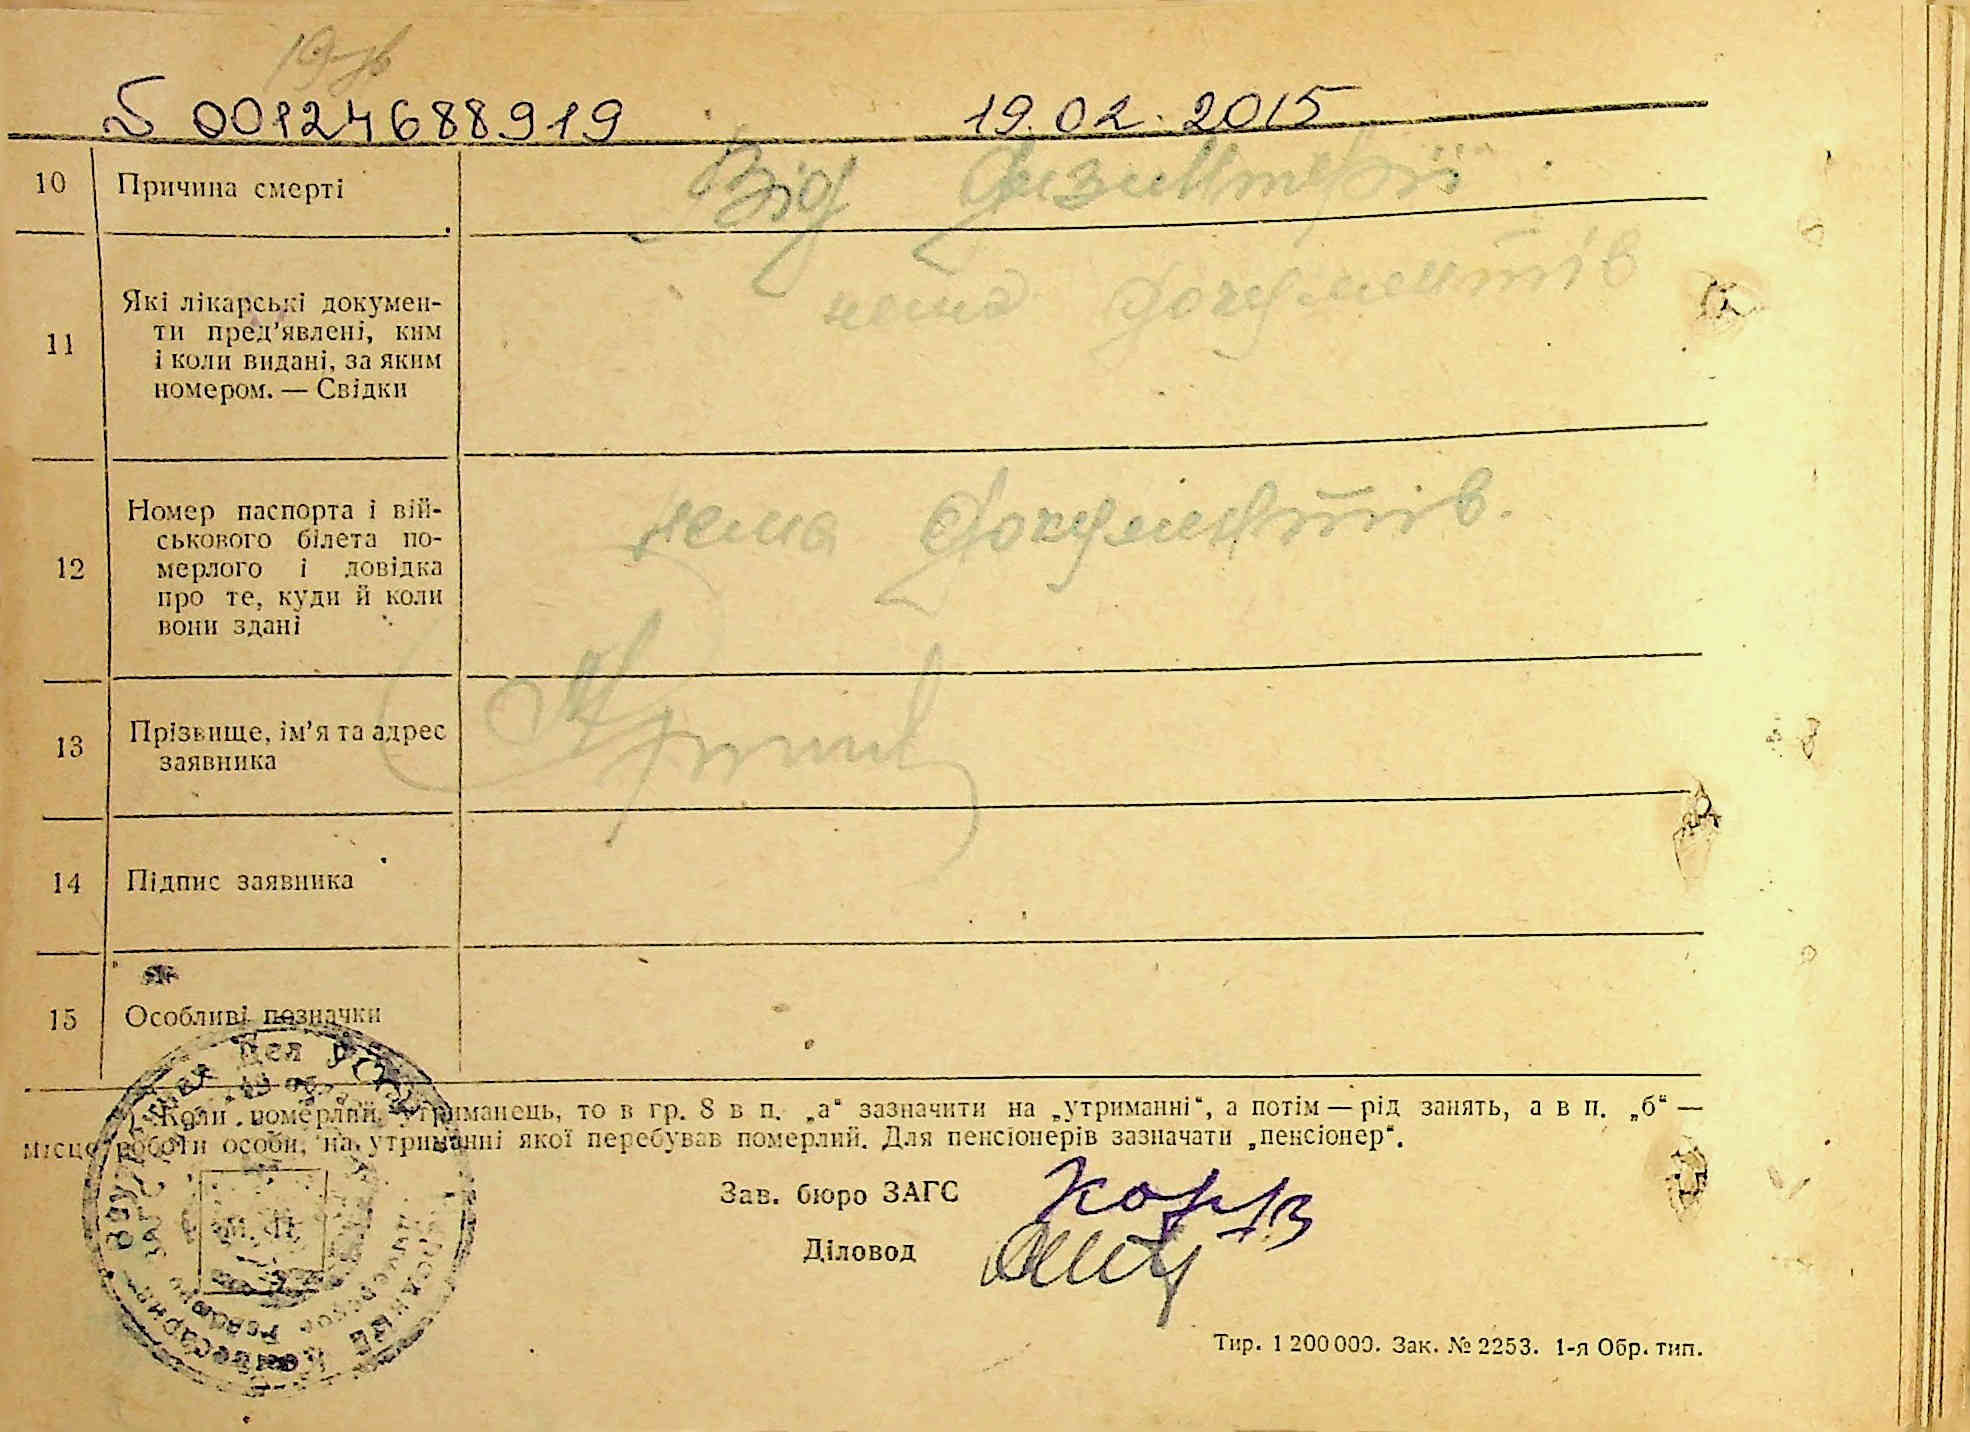 00124688919 19.02.2015
10 Причина смерті Від дизинтерії
нема документів
11 Які лікарські докумен-
ти пред’явлені, ким
і коли видані, за яким
номером. — Свідки
12 Номер паспорта і вій-
ськового білета по-
мерлого і довідка
про те, куди й коли
вони здані
нема документів.
13 Прізвище, ім’я та адрес
заявника
14 Підпис заявника
15 Особливі позначки
Коли померлий утриманець, то в гр. 8 в п. „а“ зазначити на „утриманні“, а потім — рід занять, а в п. „б“ —
місце роботи особи, на утриманні якої перебував померлий. Для пенсіонерів зазначати „пенсіонер“.
Зав. бюро ЗАГС
Діловод
Тир. 1 200 000. Зак. № 2253. 1-я Обр. тип.